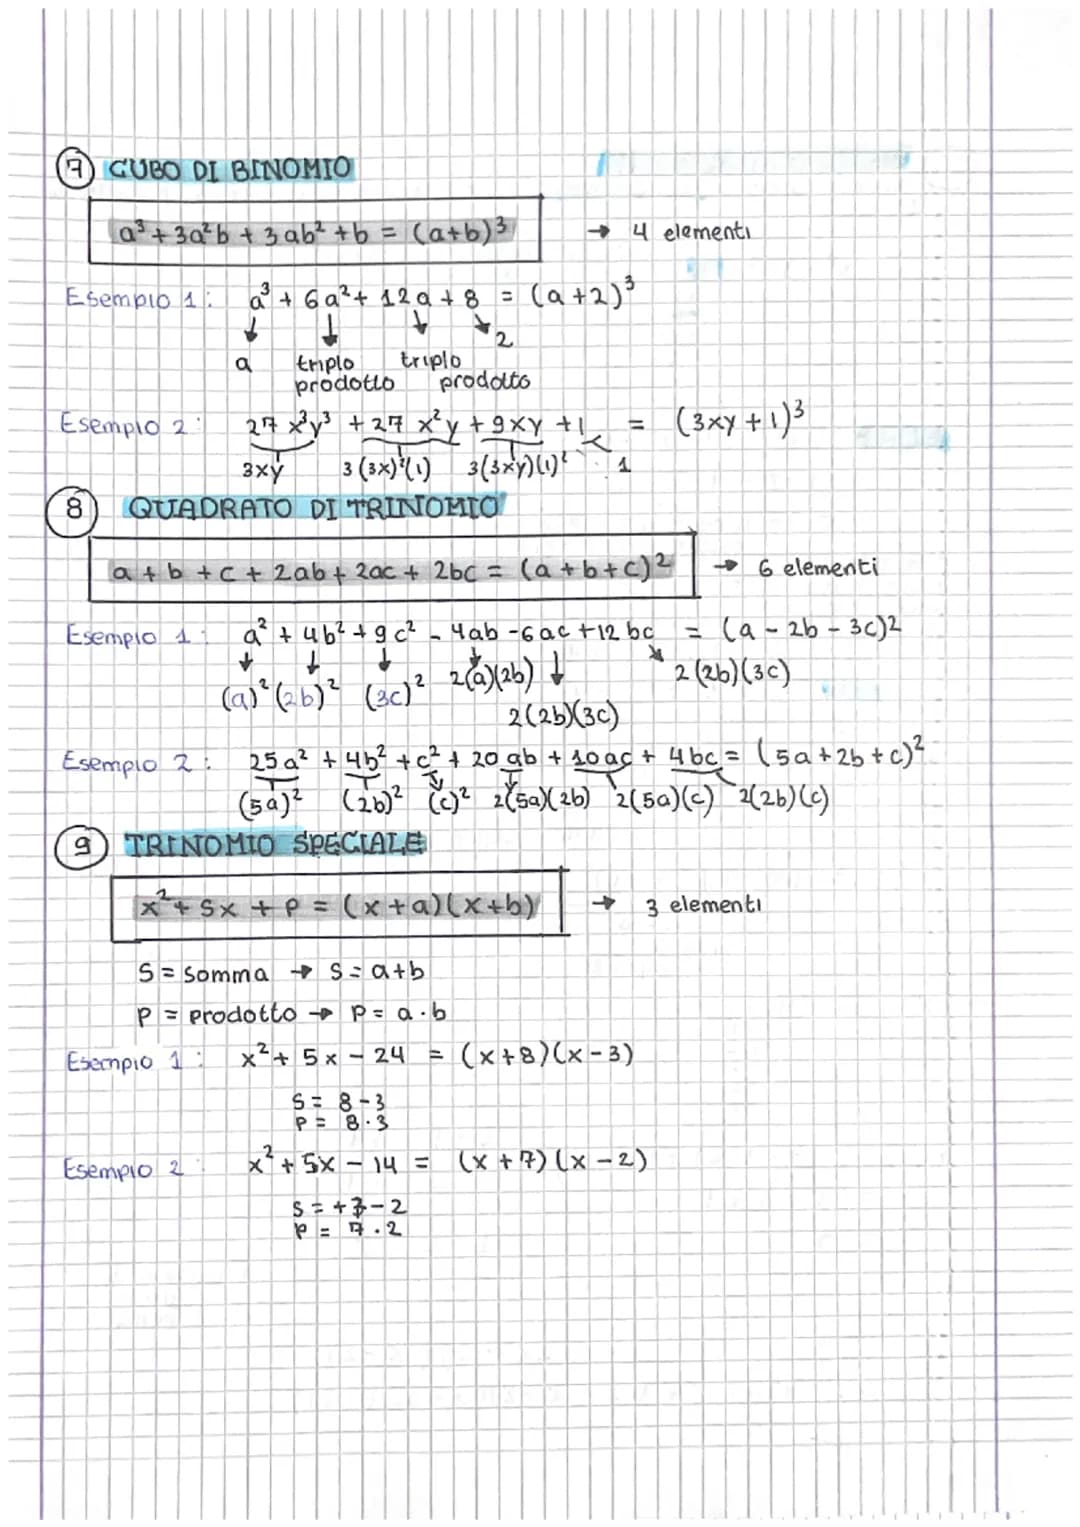 7 CUBO DI BINOMIO
a³ + 3a²b + 3ab² + b = (a+b)³ → 4 elementi
Esempio 1: a³ + 6a² + 12a + 8 = (a+2)³
a triplo prodotto triplo prodotto 2
Esempio 2: 27x³y³ + 27x²y + 9xy + 1 = (3xy+1)³
3xy 3(3x)²(1) 3(3xy)(1)² 1
8 QUADRATO DI TRINOMIO
a + b + c + 2ab + 2ac + 2bc = (a+b+c)2 → 6 elementi
Esempio 1: a² + 4b² + 9c² - 4ab - 6ac + 12bc = (a - 2b - 3c)2
(a)² (2b)² (3c)² 2(a)(2b) 2(2b)(3c)
2(2b)(3c)
Esempio 2: 25a² + 4b² + c² + 20ab + 10ac + 4bc = (5a+2b+c)²
(5a)² (2b)² (c)² 2(5a)(2b) 2(5a)(c) 2(2b)(c)
9 TRINOMIO SPECIALE
x² + Sx + P = (x+a)(x+b) → 3 elementi
S = somma → S = a+b
P = prodotto → P = a·b
Esempio 1: x² + 5x - 24 = (x+8)(x-3)
S = 8-3
P = 8·3
Esempio 2: x² + 5x - 14 = (x+7)(x-2)
S = +7-2
P = 7·2